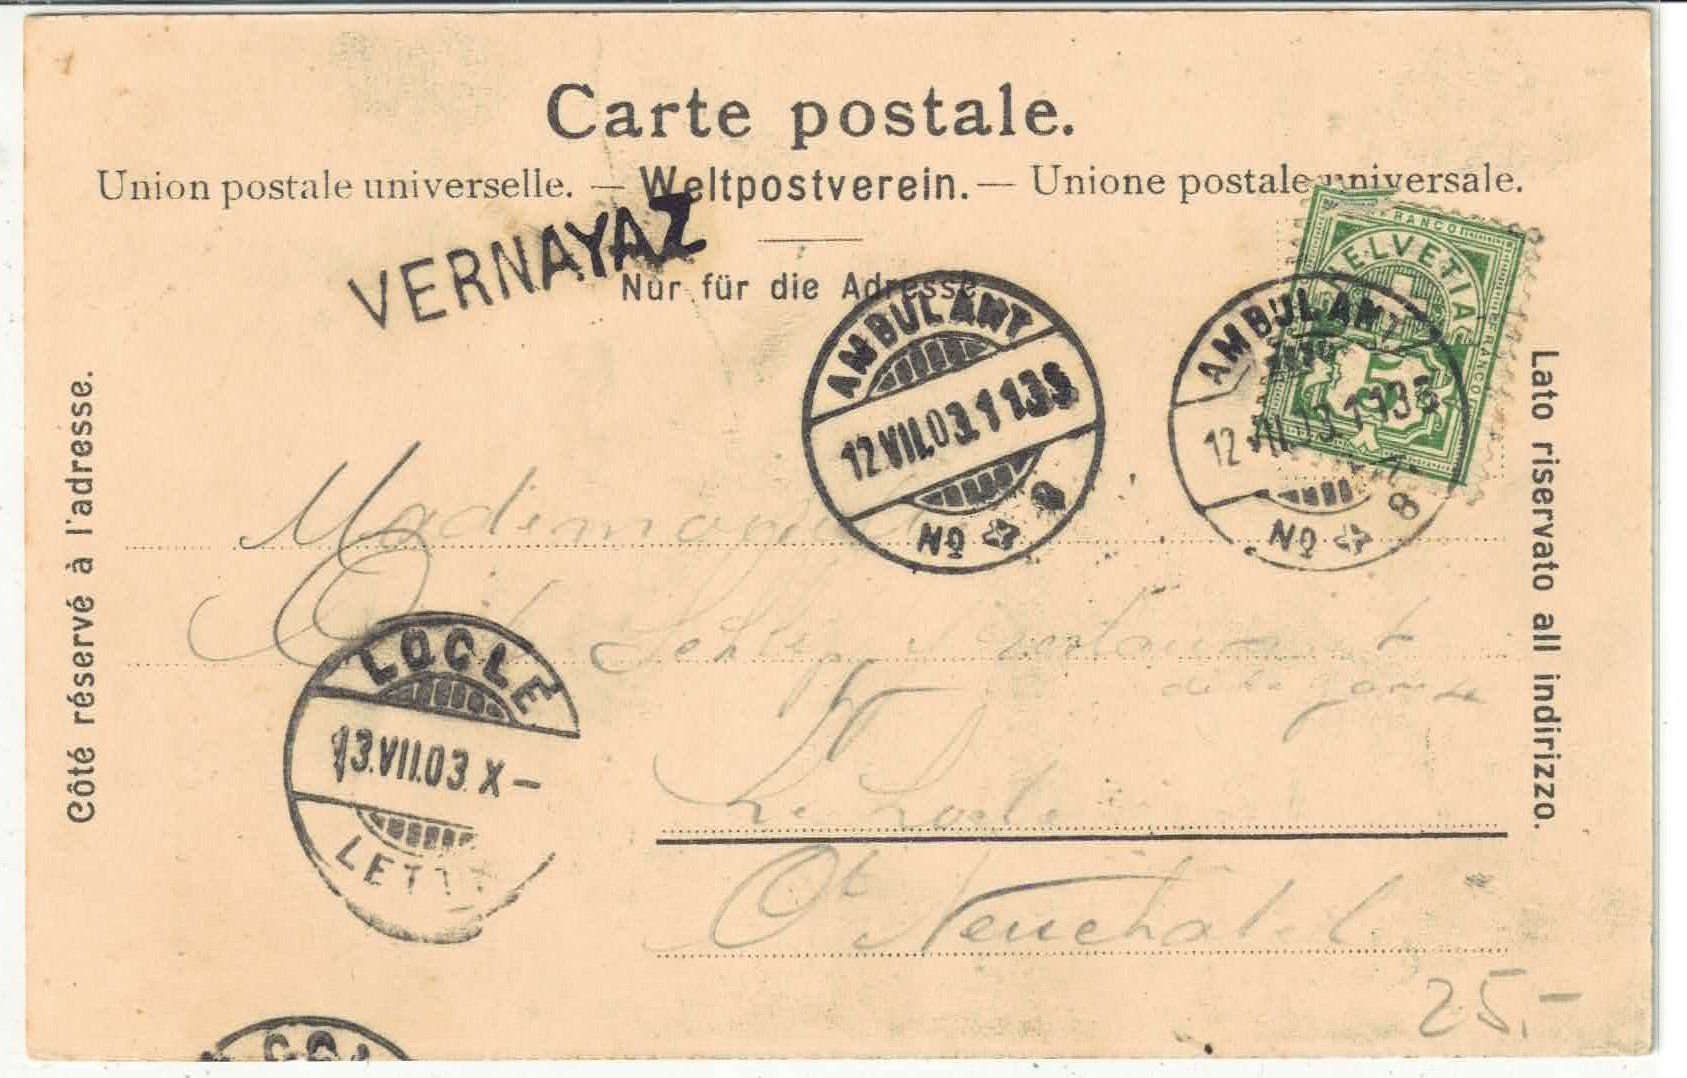 Carte postale.
Union postale universelle. — Weltpostverein. — Unione postale universale.
VERNAYAZ
Nur für die Adresse
FRANCO
HELVETIA
FRANCO
5
AMBULANT
12.VII.03.1 135
No 8
AMBULANT
12 VII 03.1 135
No 8
Côté réservé à l'adresse.
Lato riservato all indirizzo.
Mademoiselle
LOCLE
13.VII.03.X–
LETT
Restaurant
de la Gare
Le Locle
Ct Neuchâtel
25.-